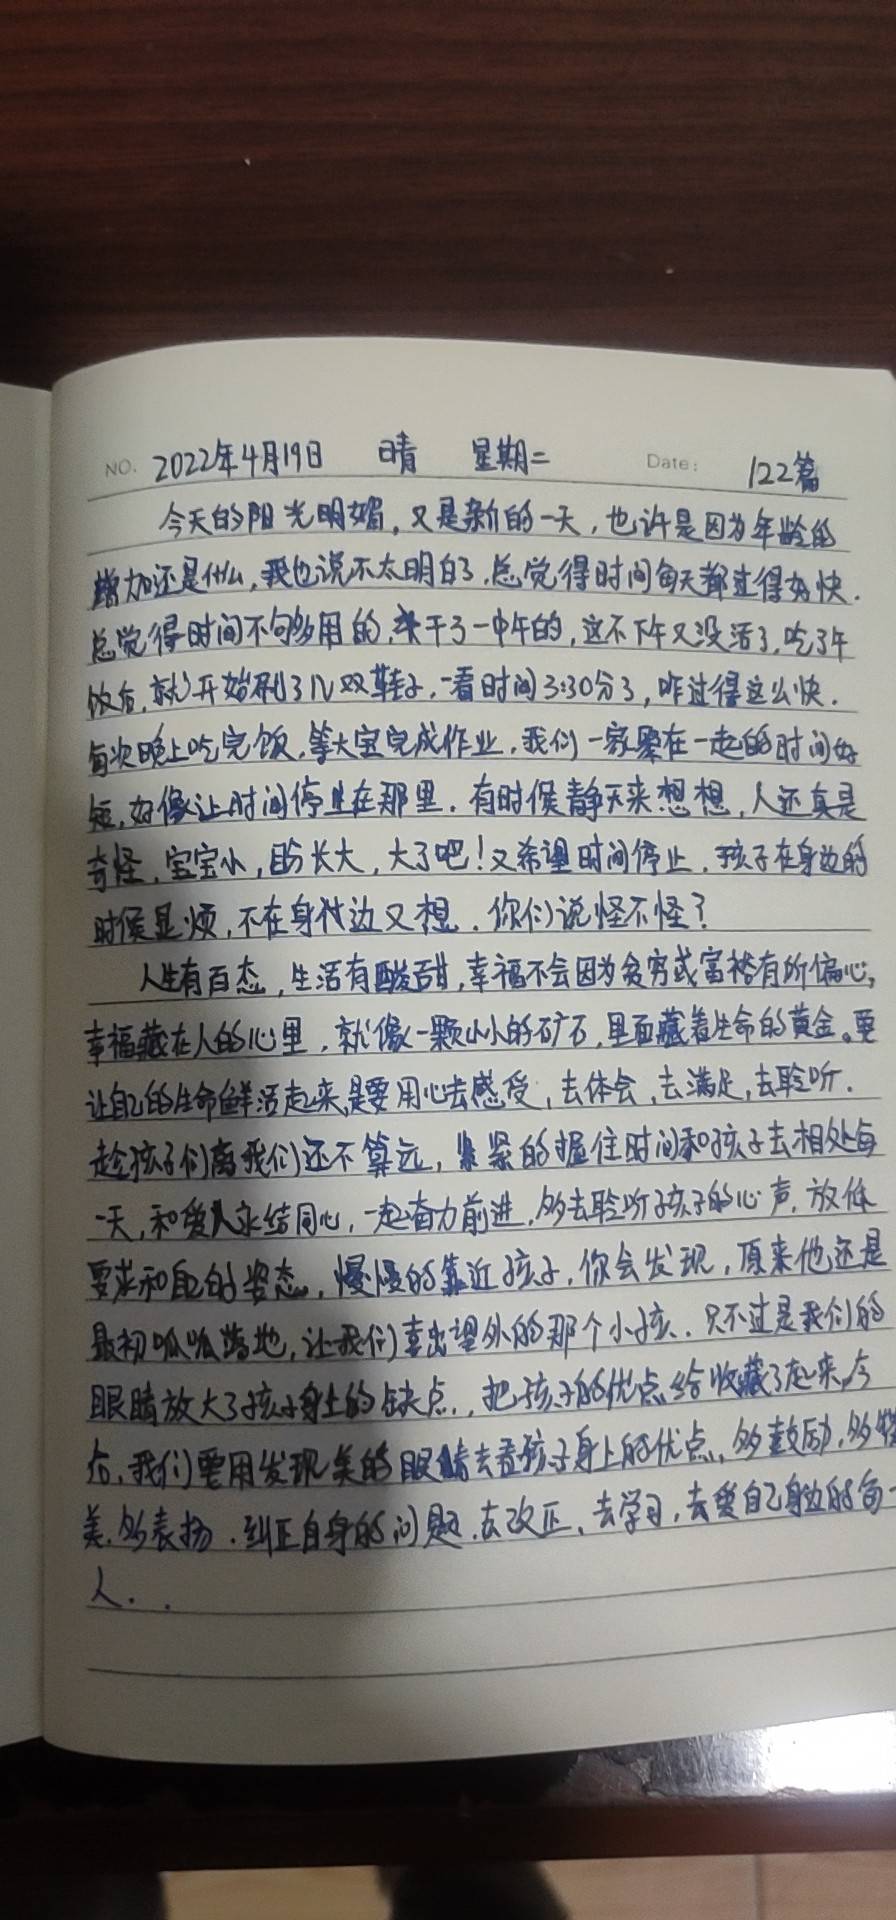 NO. 2022年4月19日 晴 星期二 Date: 122篇
今天的阳光明媚,又是新的一天,也许是因为年龄的
增加还是什么,我也说不太明白了.总觉得时间每天都过得好快.
总觉得时间不够多用的,干了一中午的,这不下午又没活了.吃了午
饭后,就开始刷了几双鞋子,一看时间3:30分了,咋过得这么快.
每次晚上吃完饭,等大宝完成作业,我们一家聚在一起的时间好
短,好像让时间停止在那里.有时候静下来想想,人还真是
奇怪,宝宝小,盼长大,大了吧!又希望时间停止.孩子在身边的
时候显烦,不在身边又想.你们说怪不怪?
人生有百态,生活有酸甜,幸福不会因为贫穷或富裕有所偏心,
幸福藏在人的心里,就像一颗小小的矿石,里面藏着生命的黄金。要
让自己的生命鲜活起来,是要用心去感受,去体会,去满足,去聆听.
趁孩子们离我们还不算远,紧紧的握住时间和孩子去相处每
一天,和爱人永结同心,一起奋力前进,多去聆听孩子的心声.放低
要求和自己的姿态,慢慢的靠近孩子,你会发现,原来他还是
最初呱呱落地,让我们喜出望外的那个小孩.只不过是我们的
眼睛放大了孩子身上的缺点,把孩子的优点给收藏了起来,今
后,我们要用发现美的眼睛去看孩子身上的优点,多鼓励,多赞
美,多表扬.纠正自身的问题.去改正、去学习,去爱自己身边的每一
人..